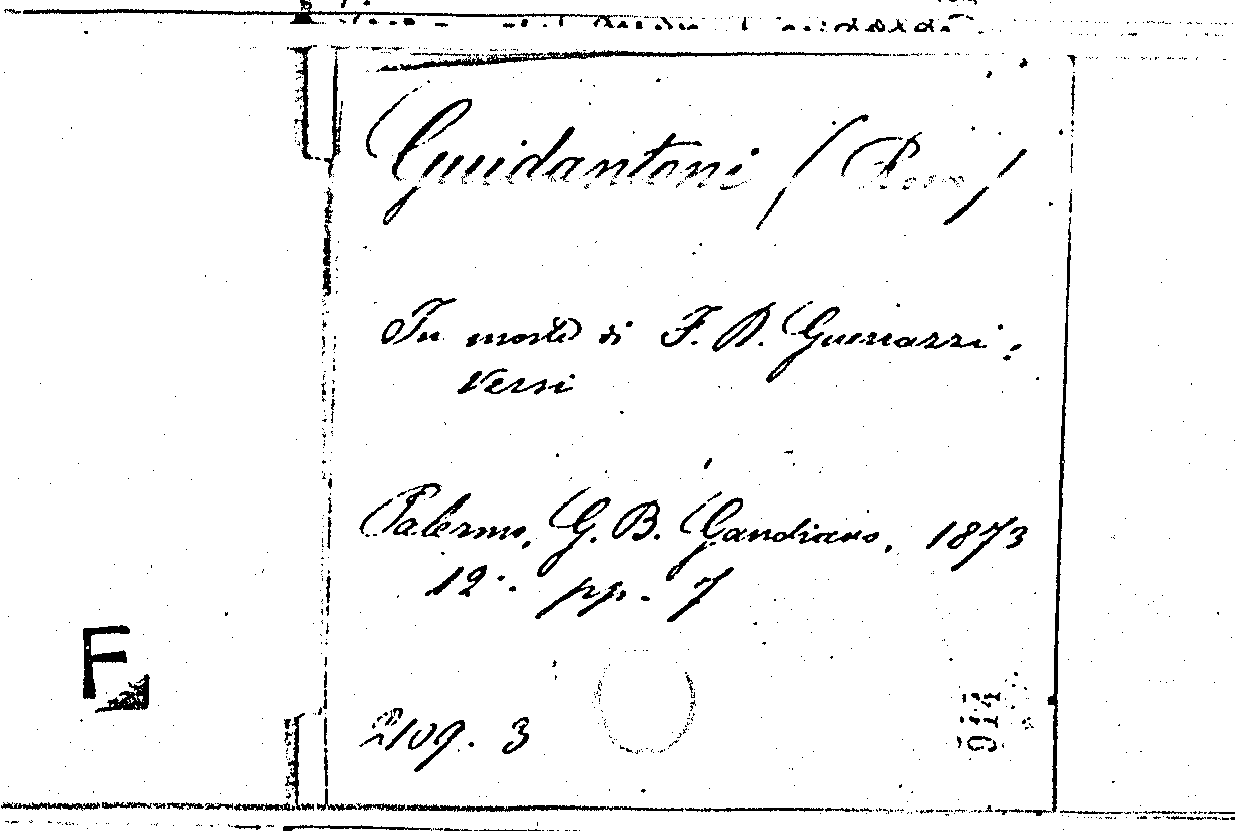 Guidantoni (Rosa)
In morte di F. D. Guerrazzi:
Versi
Palermo, G. B. Gaudiano, 1873
12°. pp. 7
2109. 3
914
F